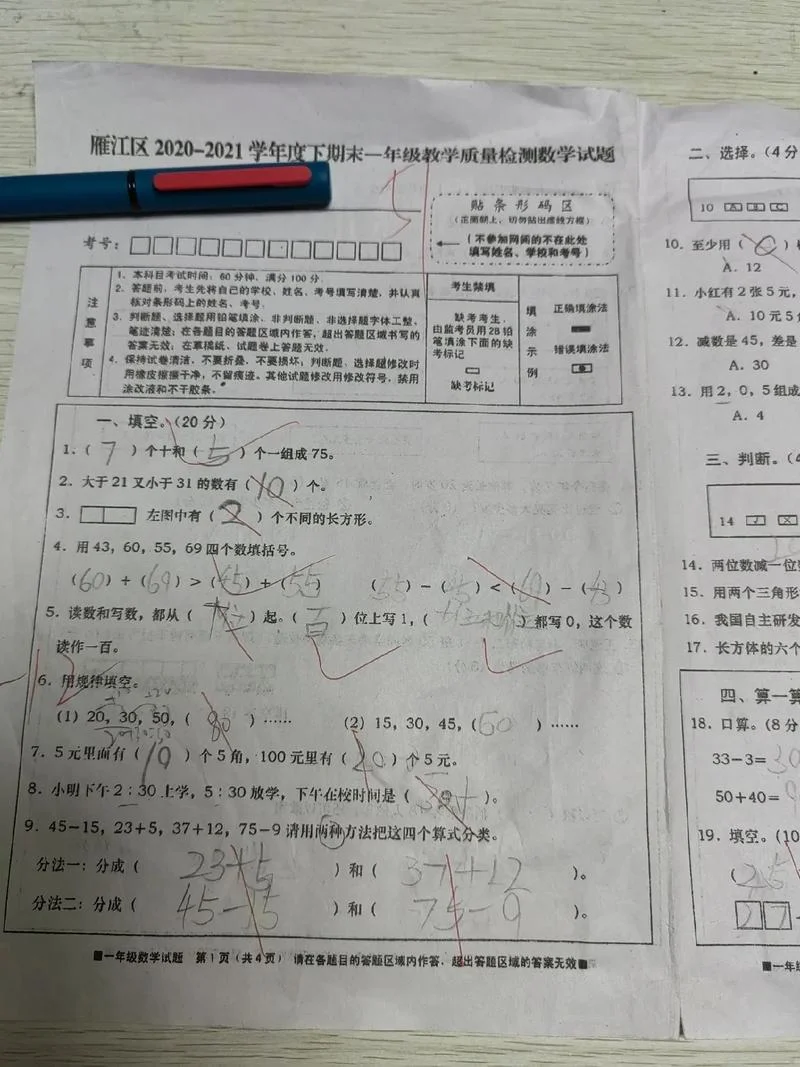 雁江区 2020-2021 学年度下期末一年级教学质量检测数学试题
贴 条 形 码 区
(正面朝上,切勿贴出虚线方框)
(不参加网阅的不在此处
填写姓名、学校和考号)
考号:
注意事项
1. 本科目考试时间:60分钟,满分100分
2. 答题前,考生先将自己的学校、姓名、考号填写清楚,并认真
核对条形码上的姓名、考号。
3. 判断题、选择题用铅笔填涂,非判断题、非选择题字体工整、
笔迹清楚;在各题目的答题区域内作答,超出答题区域书写的
答案无效;在草稿纸、试题卷上答题无效。
4. 保持试卷清洁,不要折叠、不要损坏;判断题、选择题修改时
用橡皮擦擦干净,不留痕迹。其他试题修改用修改符号,禁用
涂改液和不干胶条。
考生禁填
缺考考生,
由监考员用2B铅
笔填涂下面的缺
考标记
缺考标记
填涂示例
正确填涂法
错误填涂法
一、填空。(20分)
1.( 7 )个十和( 5 )个一组成 75。
2. 大于 21 又小于 31 的数有( 10 )个。
3. 左图中有( 2 )个不同的长方形。
4. 用 43,60,55,69 四个数填括号。
(60)+(69)>(45)+(55) (55)-( )<( )-( )
5. 读数和写数,都从( 位)起。( 百 )位上写 1,( )都写 0,这个数
读作一百。
6. 用规律填空。
(1) 20,30,50,( 80 )…… (2) 15,30,45,( 60 )……
7. 5 元里面有( 10 )个 5 角,100 元里有( 20 )个 5 元。
8. 小明下午 2:30 上学,5:30 放学,下午在校时间是( )。
9. 45-15,23+5,37+12,75-9 请用两种方法把这四个算式分类。
分法一:分成( 23+5 )和( 37+12 )。
分法二:分成( 45-15 )和( 75-9 )。
■一年级数学试题 第 1 页(共 4 页) 请在各题目的答题区域内作答,超出答题区域的答案无效■
二、选择。(4分
10 A B C
10. 至少用( C )
A. 12
11. 小红有 2 张 5 元,
A. 10 元 5
12. 减数是 45,差是
A. 30
13. 用 2,0,5 组成
A. 4
三、判断。(4
14 √ ×
14. 两位数减一位
15. 用两个三角形
16. 我国自主研发
17. 长方体的六个
四、算一算
18. 口算。(8分
33-3=30
50+40=
19. 填空。(10
(25
27
■一年级